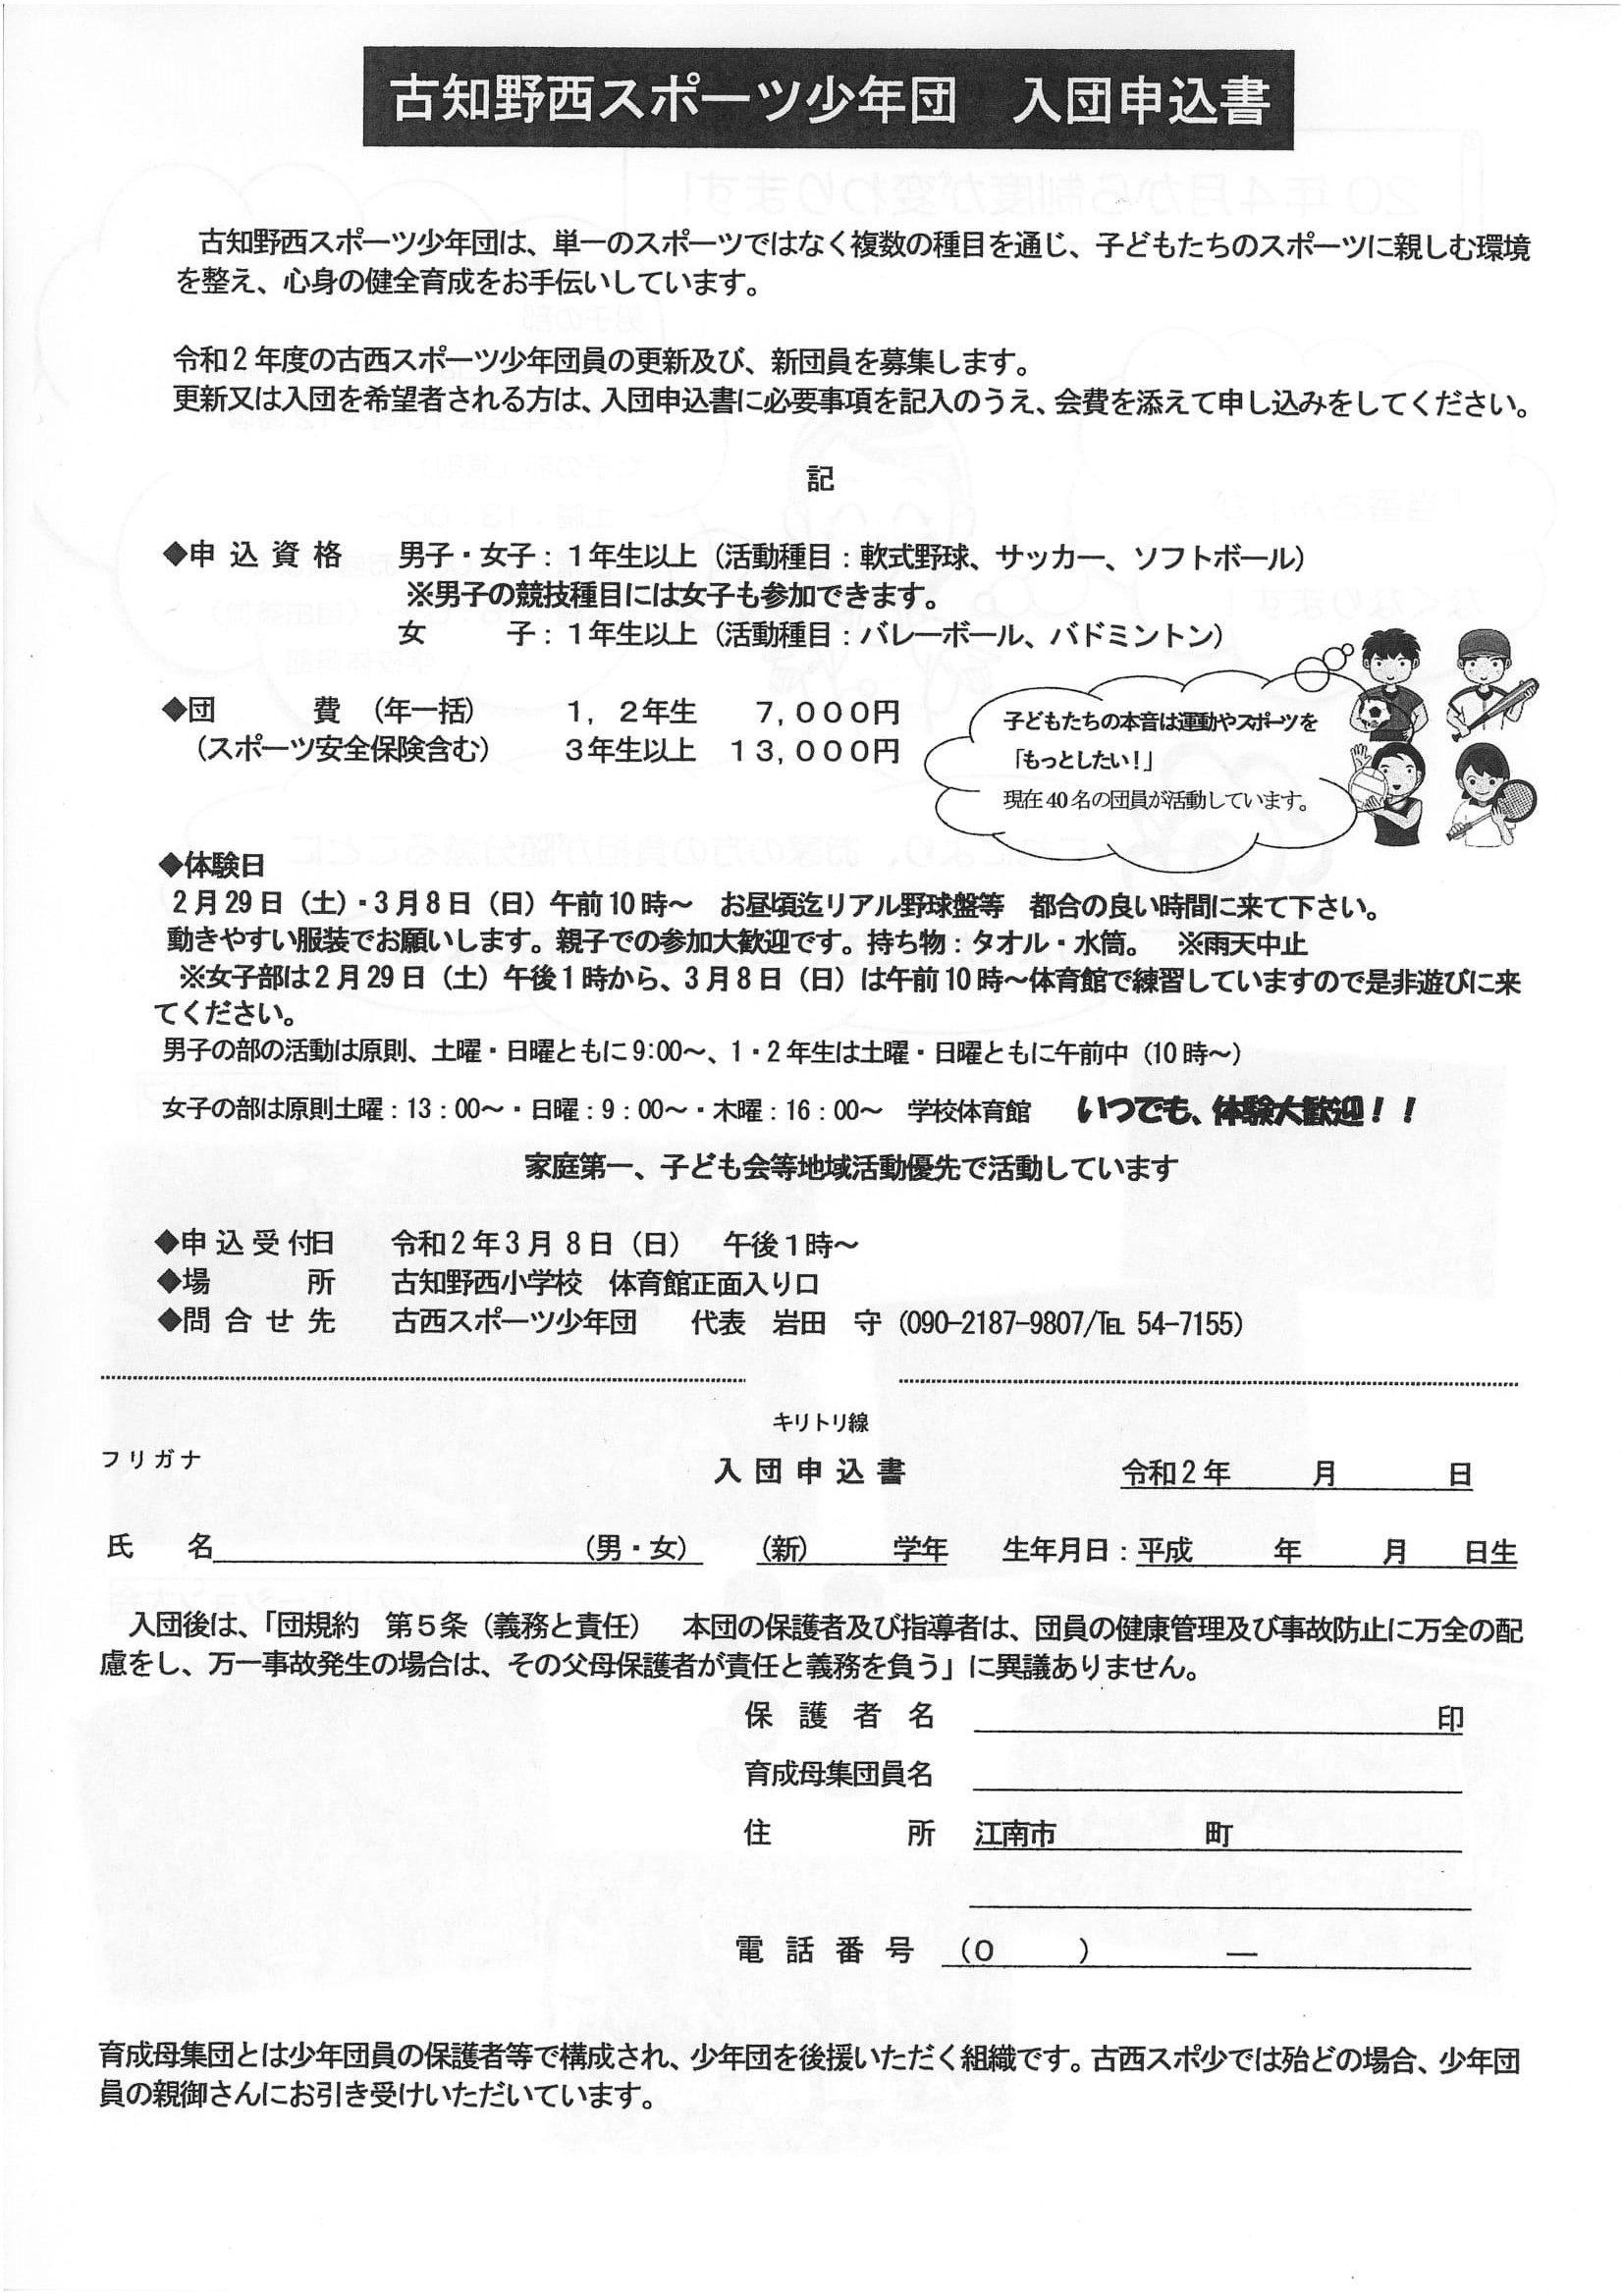 古知野西スポーツ少年団　入団申込書
古知野西スポーツ少年団は、単一のスポーツではなく複数の種目を通じ、子どもたちのスポーツに親しむ環境
を整え、心身の健全育成をお手伝いしています。
令和２年度の古西スポーツ少年団員の更新及び、新団員を募集します。
更新又は入団を希望者される方は、入団申込書に必要事項を記入のうえ、会費を添えて申し込みをしてください。
記
◆申込資格　男子・女子：１年生以上（活動種目：軟式野球、サッカー、ソフトボール）
※男子の競技種目には女子も参加できます。
女　　子：１年生以上（活動種目：バレーボール、バドミントン）
◆団　　費　（年一括）　　１，２年生　　７，０００円
（スポーツ安全保険含む）　　３年生以上　１３，０００円
子どもたちの本音は運動やスポーツを
「もっとしたい！」
現在40名の団員が活動しています。
◆体験日
２月29日（土）・３月８日（日）午前10時～　お昼頃迄リアル野球盤等　都合の良い時間に来て下さい。
動きやすい服装でお願いします。親子での参加大歓迎です。持ち物：タオル・水筒。　※雨天中止
※女子部は２月29日（土）午後１時から、３月８日（日）は午前10時～体育館で練習していますので是非遊びに来
てください。
男子の部の活動は原則、土曜・日曜ともに9:00～、１・２年生は土曜・日曜ともに午前中（10時～）
女子の部は原則土曜：13：00～・日曜：9：00～・木曜：16：00～　学校体育館　いつでも、体験大歓迎！！
家庭第一、子ども会等地域活動優先で活動しています
◆申込受付日　　令和２年３月８日（日）　午後１時～
◆場　　所　　古知野西小学校　体育館正面入り口
◆問合せ先　　古西スポーツ少年団　　代表　岩田　守（090-2187-9807/℡ 54-7155）
キリトリ線
フリガナ
入団申込書　　令和２年　　月　　日
氏　　名　　（男・女）　（新）　　学年　　生年月日：平成　　年　　月　　日生
入団後は、「団規約　第５条（義務と責任）　本団の保護者及び指導者は、団員の健康管理及び事故防止に万全の配
慮をし、万一事故発生の場合は、その父母保護者が責任と義務を負う」に異議ありません。
保護者名　　印
育成母集団員名
住　　所　江南市　　町
電話番号　（０　　）　　―
育成母集団とは少年団員の保護者等で構成され、少年団を後援いただく組織です。古西スポ少では殆どの場合、少年団
員の親御さんにお引き受けいただいています。